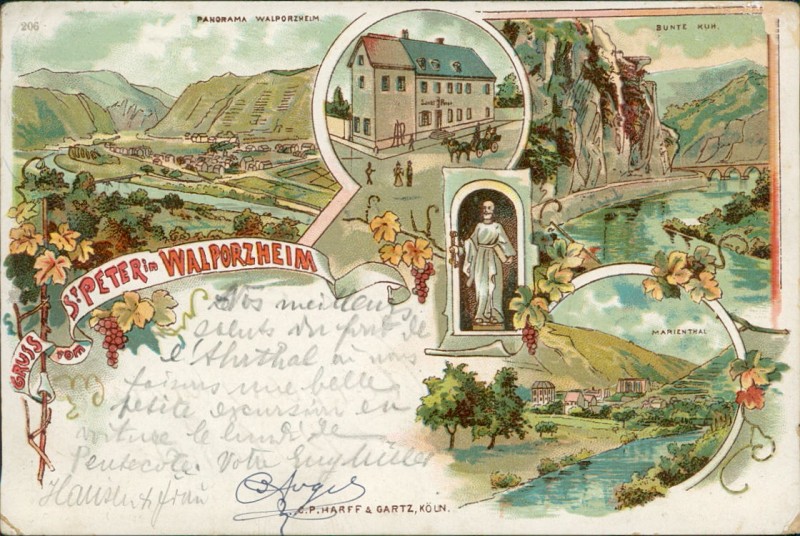 206
PANORAMA WALPORZHEIM.
BUNTE KUH.
Sanct Peter
GRUSS vom ST PETER in WALPORZHEIM
MARIENTHAL
Nos meilleurs
saluts du fond de
l'Ahrthal où nous
faisons une belle
petite excursion en
voiture le lundi de
Pentecôte. Votre Eug Müller
Frau
C.P. HARFF & GARTZ, KÖLN.